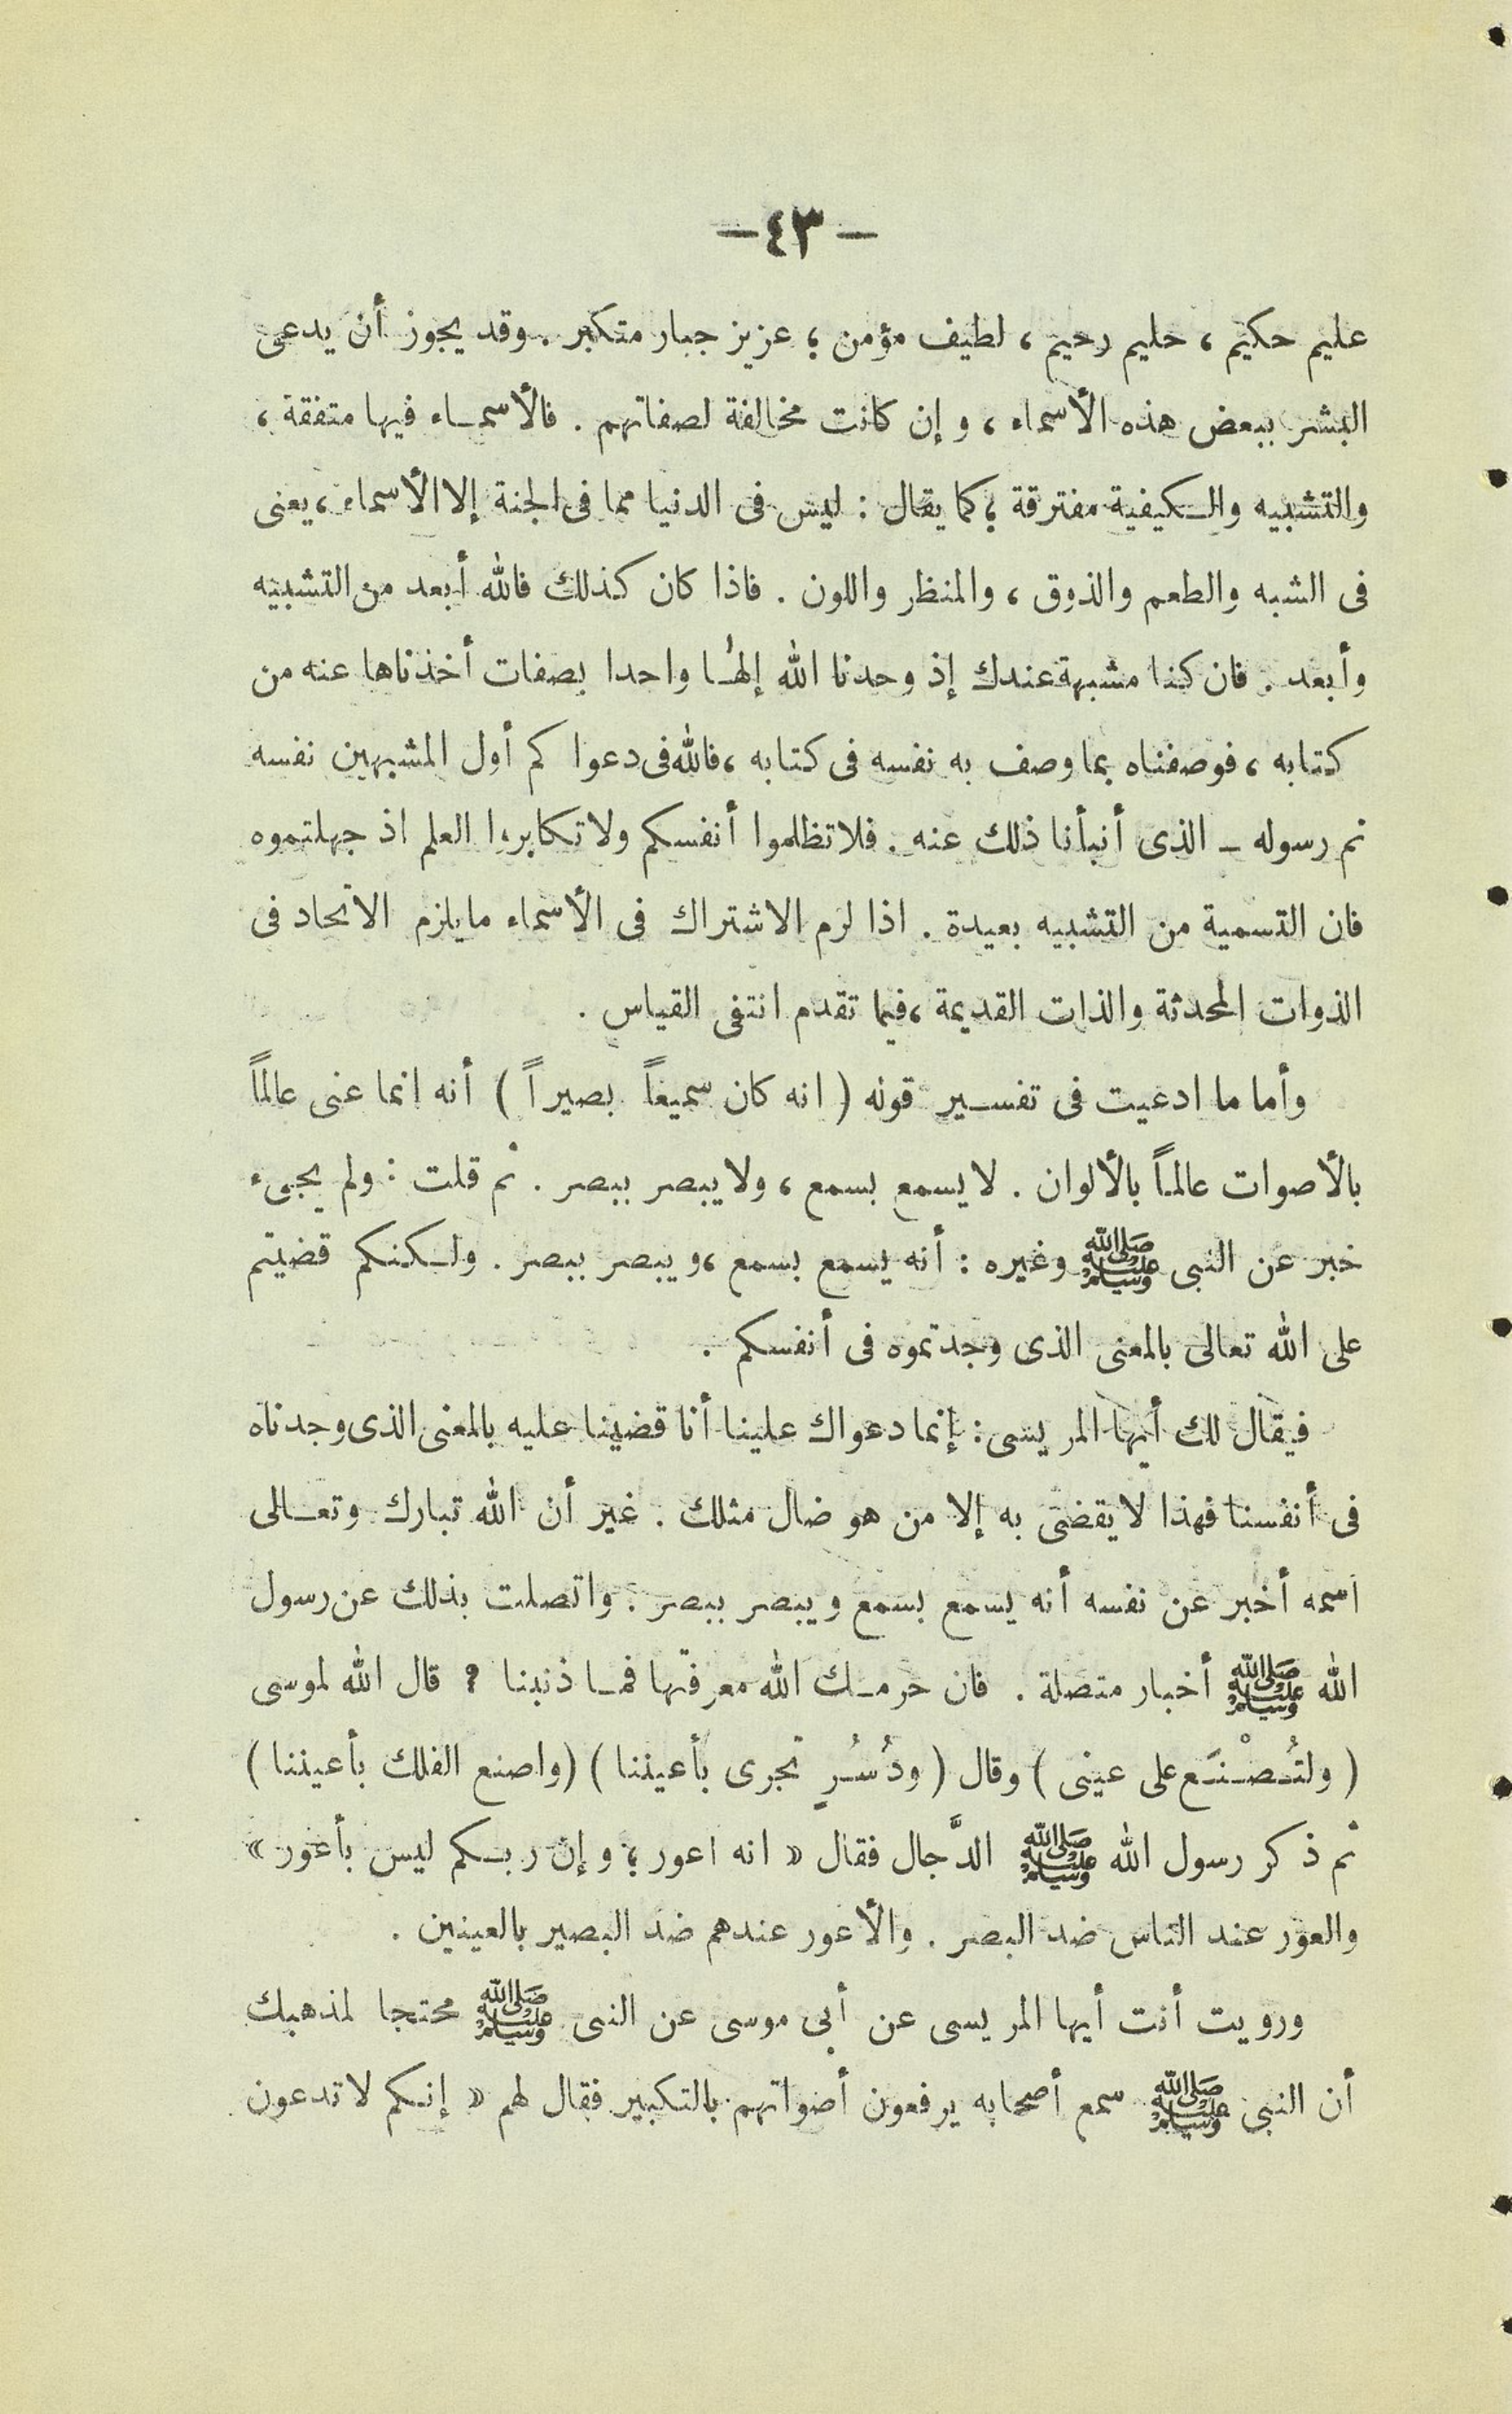 -٤٣-
عليم حكيم ، حليم رحيم ، لطيف مؤمن ؛ عزيز جبار متكبر . وقد يجوز أن يدعى
البشر ببعض هذه الأسماء ، وإن كانت مخالفة لصفاتهم . فالأسماء فيها متفقة ،
والتشبيه والكيفية مفترقة ؛ كما يقال : ليس فى الدنيا مما فى الجنة إلا الأسماء ، يعنى
فى الشبه والطعم والذوق ، والمنظر واللون . فاذا كان كذلك فالله أبعد من التشبيه
وأبعد . فان كنا مشبهة عندك إذ وحدنا الله إلهًا واحدا بصفات أخذناها عنه من
كتابه ، فوصفناه بما وصف به نفسه فى كتابه ، فالله فى دعوا كم أول المشبهين نفسه
ثم رسوله - الذى أنبأنا ذلك عنه . فلا تظلموا أنفسكم ولا تكابروا العلم اذ جهلتموه
فان التسمية من التشبيه بعيدة . اذا لزم الاشتراك فى الأسماء ما يلزم الاتحاد فى
الذوات المحدثة والذات القديمة ، فيما تقدم انتفى القياس .
وأما ما ادعيت فى تفسير قوله ( انه كان سميعاً بصيراً ) أنه انما عنى عالماً
بالأصوات عالماً بالألوان . لا يسمع بسمع ، ولا يبصر ببصر . ثم قلت : ولم يجىء
خبر عن النبى ﷺ وغيره : أنه يسمع بسمع ، ويبصر ببصر . ولكنكم قضيتم
على الله تعالى بالمعنى الذى وجدتموه فى أنفسكم .
فيقال لك أيها المريسى : إنما دعواك علينا أنا قضينا عليه بالمعنى الذى وجدناه
فى أنفسنا فهذا لا يقضى به إلا من هو ضال مثلك . غير أن الله تبارك وتعالى
اسمه أخبر عن نفسه أنه يسمع بسمع ويبصر ببصر . واتصلت بذلك عن رسول
الله ﷺ أخبار متصلة . فان حرمك الله معرفتها فما ذنبنا ؟ قال الله لموسى
( ولتُصْنَع على عينى ) وقال ( ودُسُرٍ تجرى بأعيننا ) ( واصنع الفلك بأعيننا )
ثم ذكر رسول الله ﷺ الدَّجال فقال « انه اعور ؛ وإن ربكم ليس بأعور »
والعور عند الناس ضد البصر . والأعور عندهم ضد البصير بالعينين .
ورويت أنت أيها المريسى عن أبى موسى عن النبى ﷺ محتجا لمذهبك
أن النبى ﷺ سمع أصحابه يرفعون أصواتهم بالتكبير فقال لهم « إنكم لا تدعون